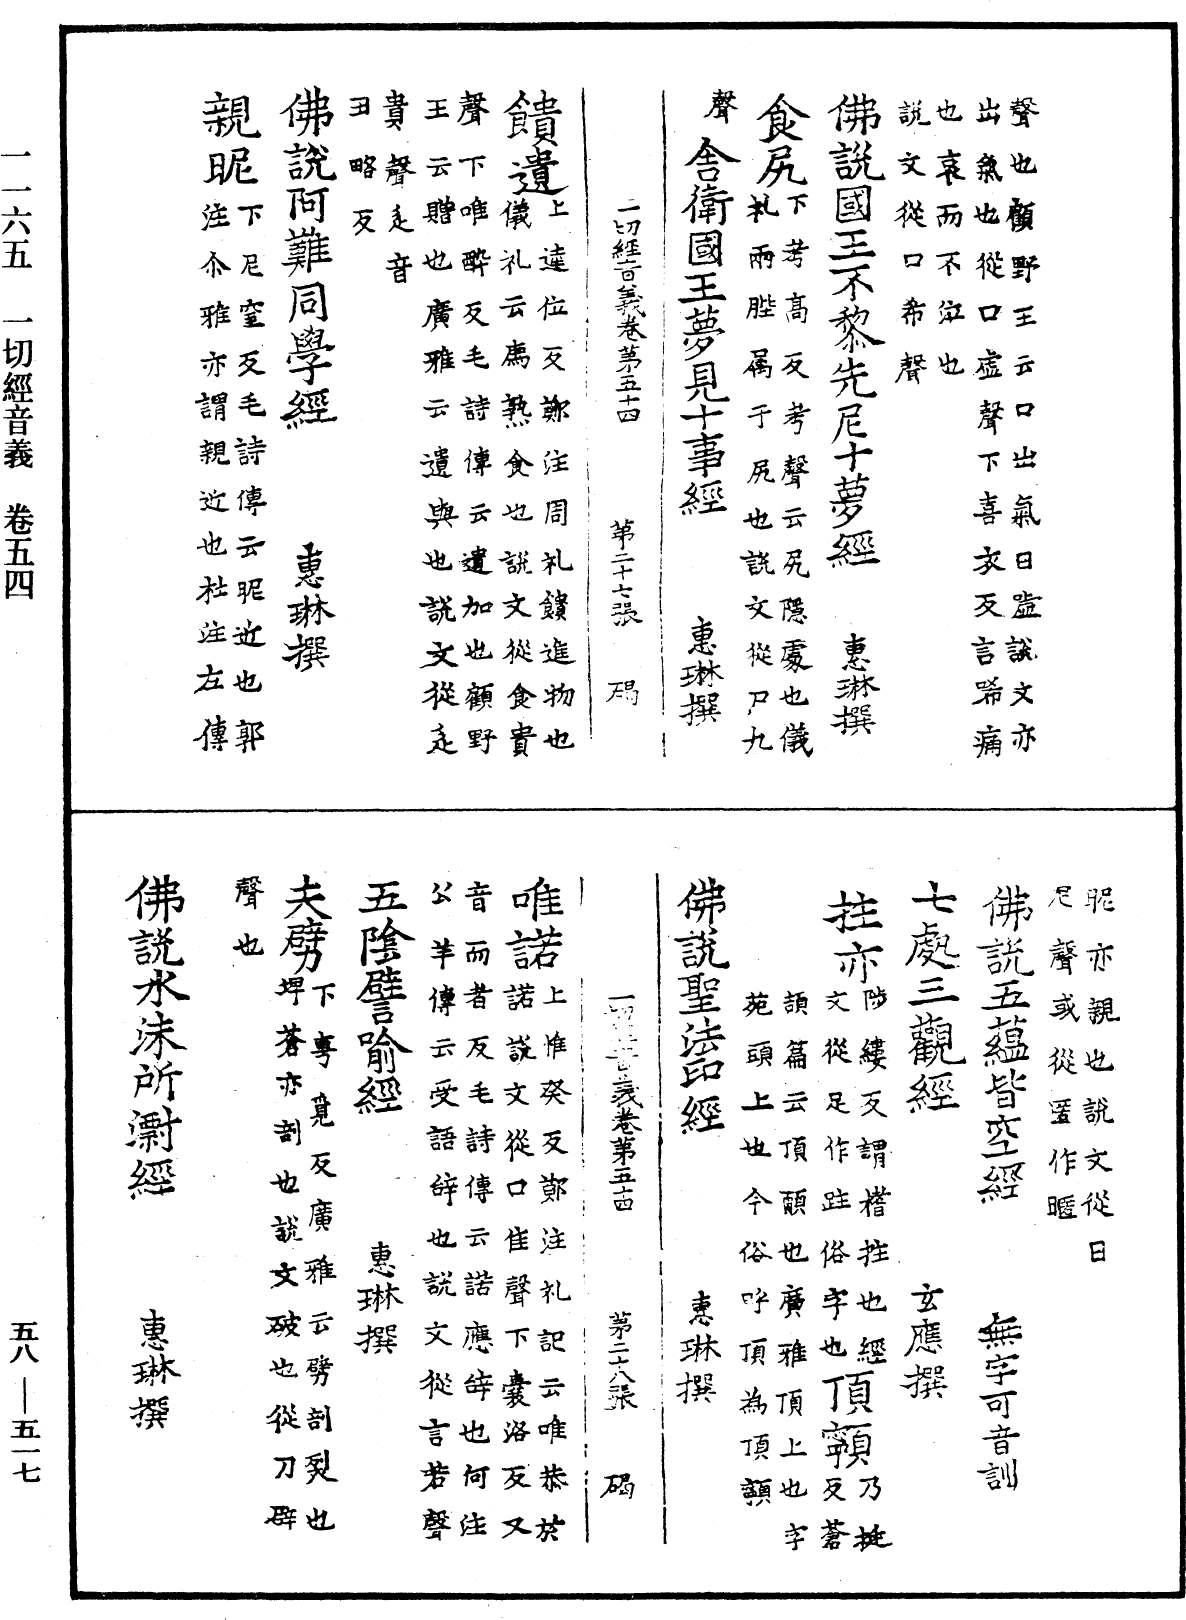 聲也顧野王云口出氣曰噓說文亦
出氣也從口虛聲下喜衣反言唏痛
也哀而不泣也
說文從口希聲
佛說國王不黎先尼十夢經 惠琳撰
食尻下考高反考聲云尻隱處也儀
礼兩䏶屬于尻也說文從尸九
聲
舍衛國王夢見十事經 惠琳撰
一切經音義卷第五十四 第二十七張 碣
饋遺上逵位反鄭注周礼饋進物也
儀礼云薦熟食也說文從食貴
聲下唯醉反毛詩傳云遺加也顧野
王云贈也廣雅云遺與也說文從辵
貴聲辵音
丑略反
佛說阿難同學經 惠琳撰
親昵下尼窒反毛詩傳云昵近也郭
注尒雅亦謂親近也杜注左傳
昵亦親也說文從日
尼聲或從匿作暱
佛說五蘊皆空經 無字可音訓
七處三觀經 玄應撰
拄亦陟縷反謂榰拄也經
文從足作跓俗字也
頂𩕳乃挺反蒼
頡篇云頂𩕳也廣雅頂上也字
苑頭上也今俗呼頂為頂𩕳
佛說聖法印經 惠琳撰
一切經音義卷第五十四 第二十八張 碣
唯諾上惟癸反鄭注礼記云唯恭於
諾說文從口隹聲下囊洛反又
音而者反毛詩傳云諾應辝也何注
公羊傳云受語辝也說文從言若聲
五陰譬喻經 惠琳撰
夫劈下甹覓反廣雅云劈剖裂也
埤蒼亦剖也說文破也從刀辟
聲也
佛說水沫所漂經 惠琳撰
一一六五 一切經音義 卷五四
五八—五一七